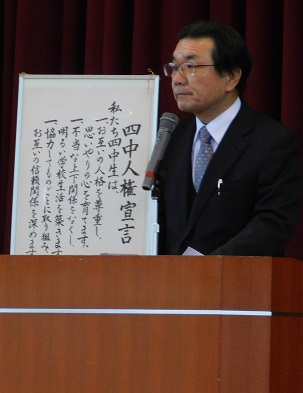 四中人権宣言
私たち四中生は、
一、お互いの人格を尊重し、
思いやりの心を育てます。
一、不当な上下関係をなくし、
明るい学校生活を築きます。
一、協力してものごとに取り組み、
お互いの信頼関係を深めます